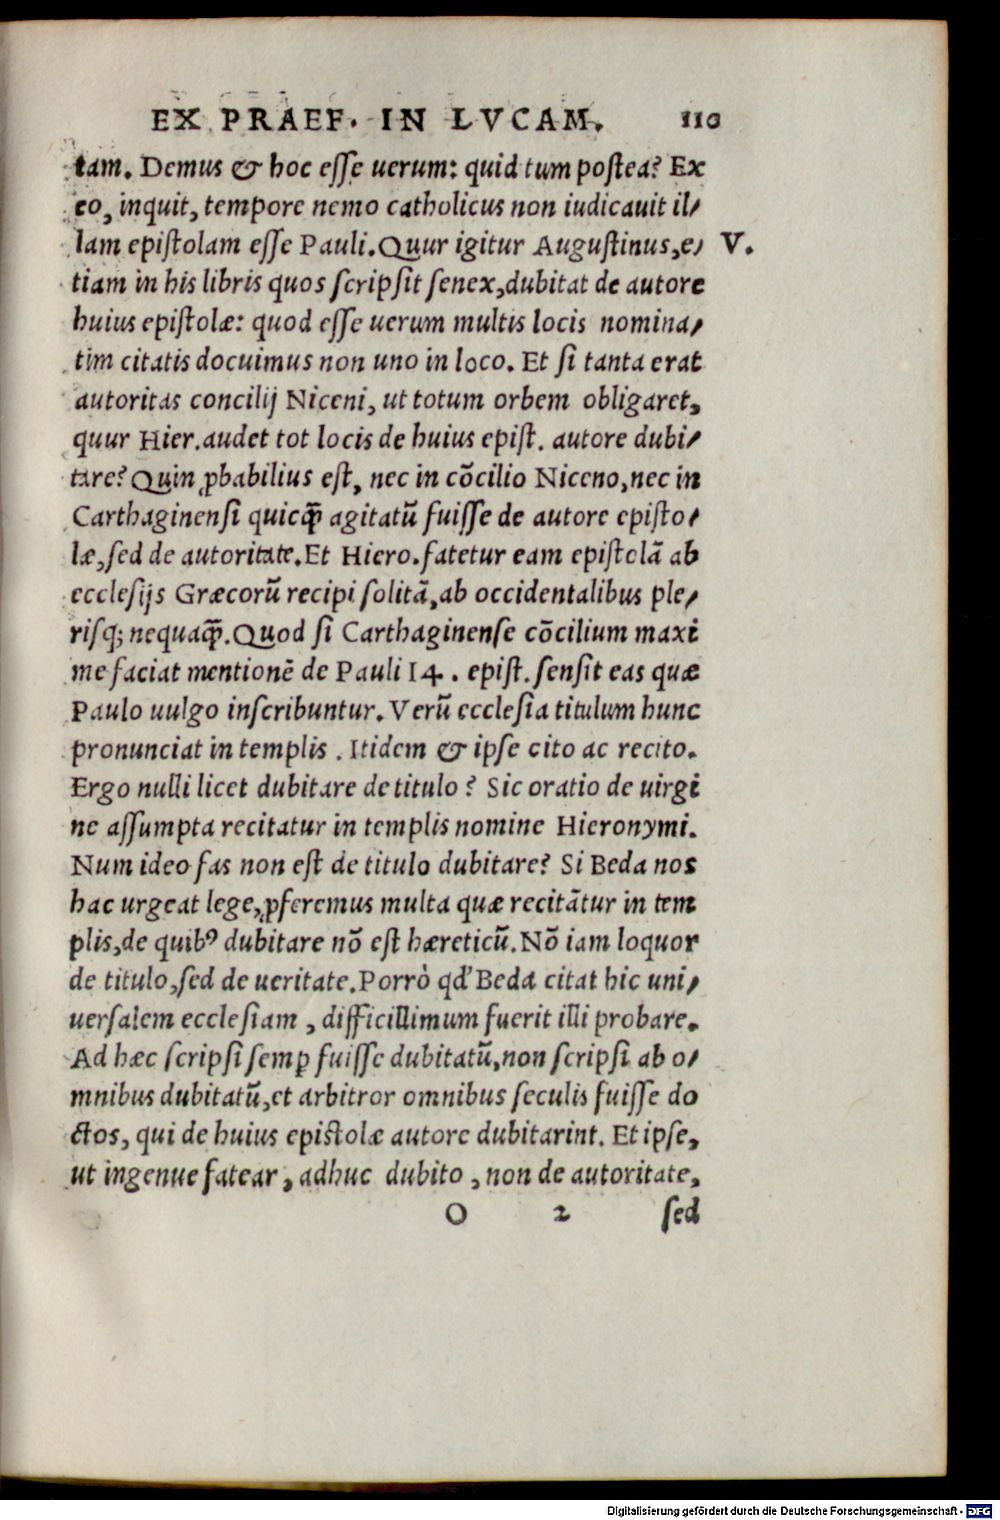 EX PRAEF. IN LVCAM. 110
tam. Demus & hoc esse uerum: quid tum postea? Ex
eo, inquit, tempore nemo catholicus non iudicauit il/
lam epistolam esse Pauli. Quur igitur Augustinus, e/ V.
tiam in his libris quos scripsit senex, dubitat de autore
huius epistolæ: quod esse uerum multis locis nomina/
tim citatis docuimus non uno in loco. Et si tanta erat
autoritas concilij Niceni, ut totum orbem obligaret,
quur Hier. audet tot locis de huius epist. autore dubi/
tare? Quin ꝓbabilius est, nec in cōcilio Niceno, nec in
Carthaginensi quicq̄ agitatū fuisse de autore episto/
læ, sed de autoritate. Et Hiero. fatetur eam epistolā ab
ecclesijs Græcorū recipi solitā, ab occidentalibus ple/
risq; nequaq̄. Quod si Carthaginense cōcilium maxi
me faciat mentionē de Pauli 14. epist. sensit eas quæ
Paulo uulgo inscribuntur. Verū ecclesia titulum hunc
pronunciat in templis. Itidem & ipse cito ac recito.
Ergo nulli licet dubitare de titulo? Sic oratio de uirgi
ne assumpta recitatur in templis nomine Hieronymi.
Num ideo fas non est de titulo dubitare? Si Beda nos
hac urgeat lege, ꝓferemus multa quæ recitātur in tem
plis, de quibꝰ dubitare nō est hæreticū. Nō iam loquor
de titulo, sed de ueritate. Porrò qd' Beda citat hic uni/
uersalem ecclesiam, difficillimum fuerit illi probare.
Ad hæc scripsi semꝑ fuisse dubitatū, non scripsi ab o/
mnibus dubitatū, et arbitror omnibus seculis fuisse do
ctos, qui de huius epistolæ autore dubitarint. Et ipse,
ut ingenue fatear, adhuc dubito, non de autoritate,
O 2 sed
Digitalisierung gefördert durch die Deutsche Forschungsgemeinschaft - DFG